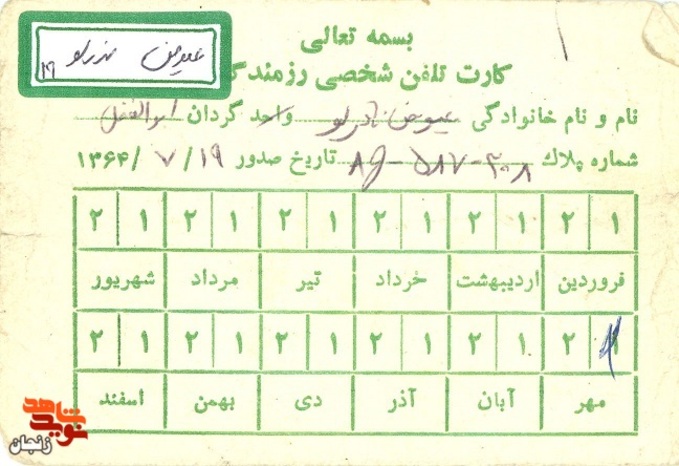 بسمه تعالی
کارت تلفن شخصی رزمندگ
عیوض نادرلو ۱۹
نام و نام خانوادگی عیوض نادرلو واحد گردان ابوالفضل
شماره پلاك ۳۰۸-۵۸۷-AJ تاریخ صدور ۱۹/ ۷ /۱۳۶۴
۱ ۲ ۱ ۲ ۱ ۲ ۱ ۲ ۱ ۲ ۱ ۲
فروردین اردیبهشت خرداد تیر مرداد شهریور
۱ ۲ ۱ ۲ ۱ ۲ ۱ ۲ ۱ ۲ ۱ ۲
مهر آبان آذر دی بهمن اسفند
نوید شاهد
زنجان